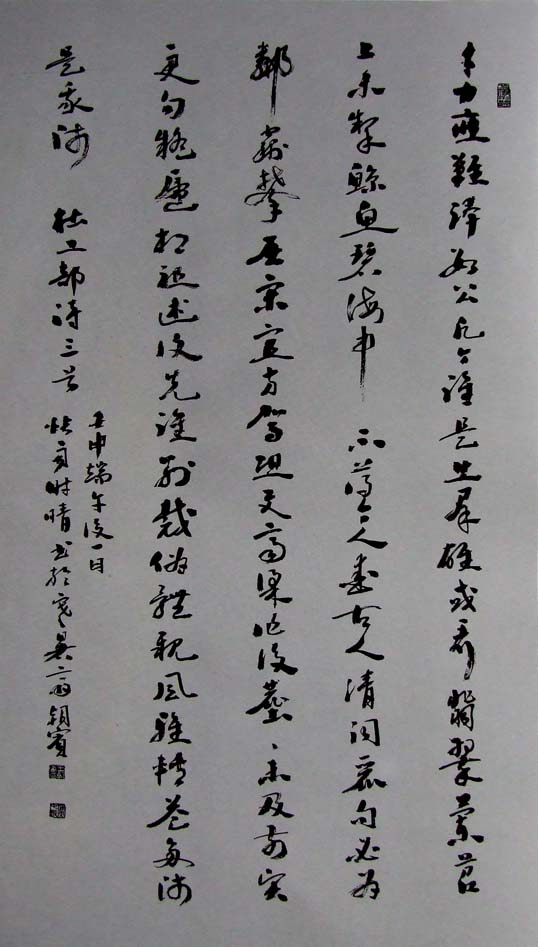 才力應難跨數公凡今誰是出群雄或看翡翠蘭苕
上未掣鯨魚碧海中 不薄今人愛古人清詞麗句必為
鄰竊攀屈宋宜方駕恐與齊梁作後塵 未及前賢
更勿疑遞相祖述復先誰別裁偽體親風雅轉益多師
是我師 杜工部詩三首
壬申端午後一日
時晴書於 齋 朝賓